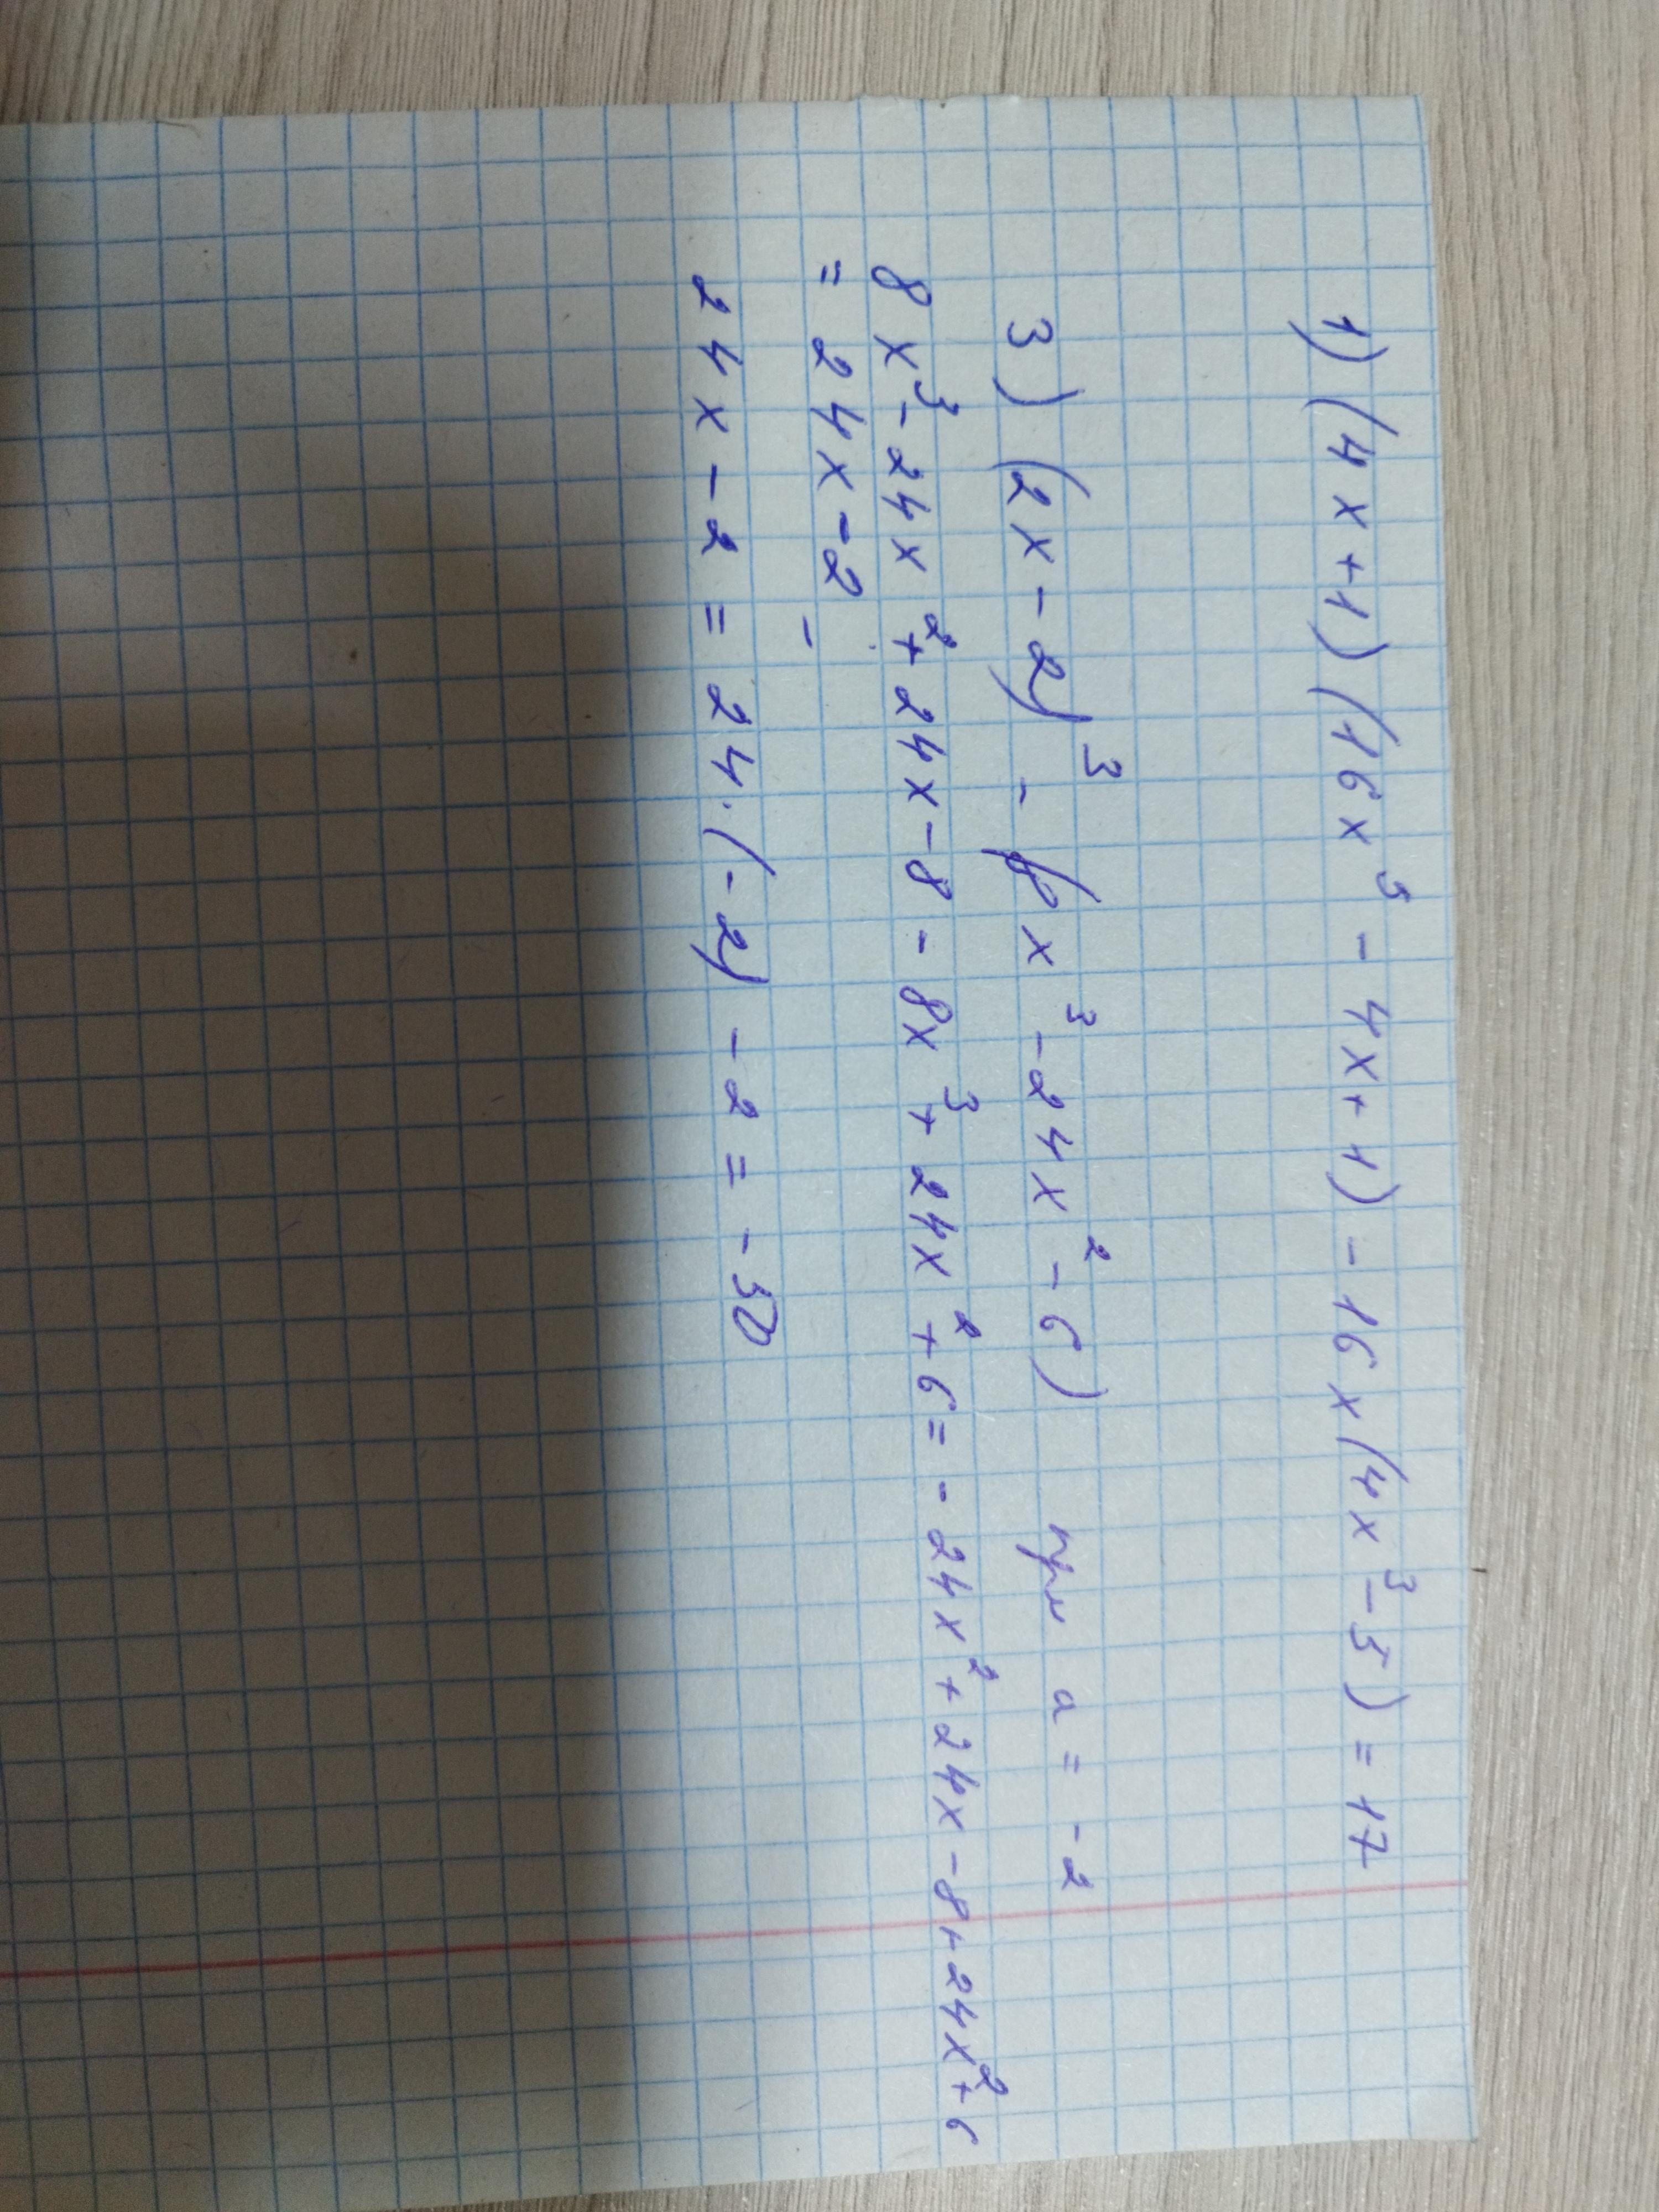 1) (4x+1)(16x⁵ - 4x+1) - 16x(4x³-5) = 17
3) (2x-2)³ - (8x³-24x²-6) при a = -2
8x³-24x²+24x-8-8x³+24x²+6=-24x²+24x-8+24x²+6
= 24x-2
24x-2=24·(-2)-2=-50